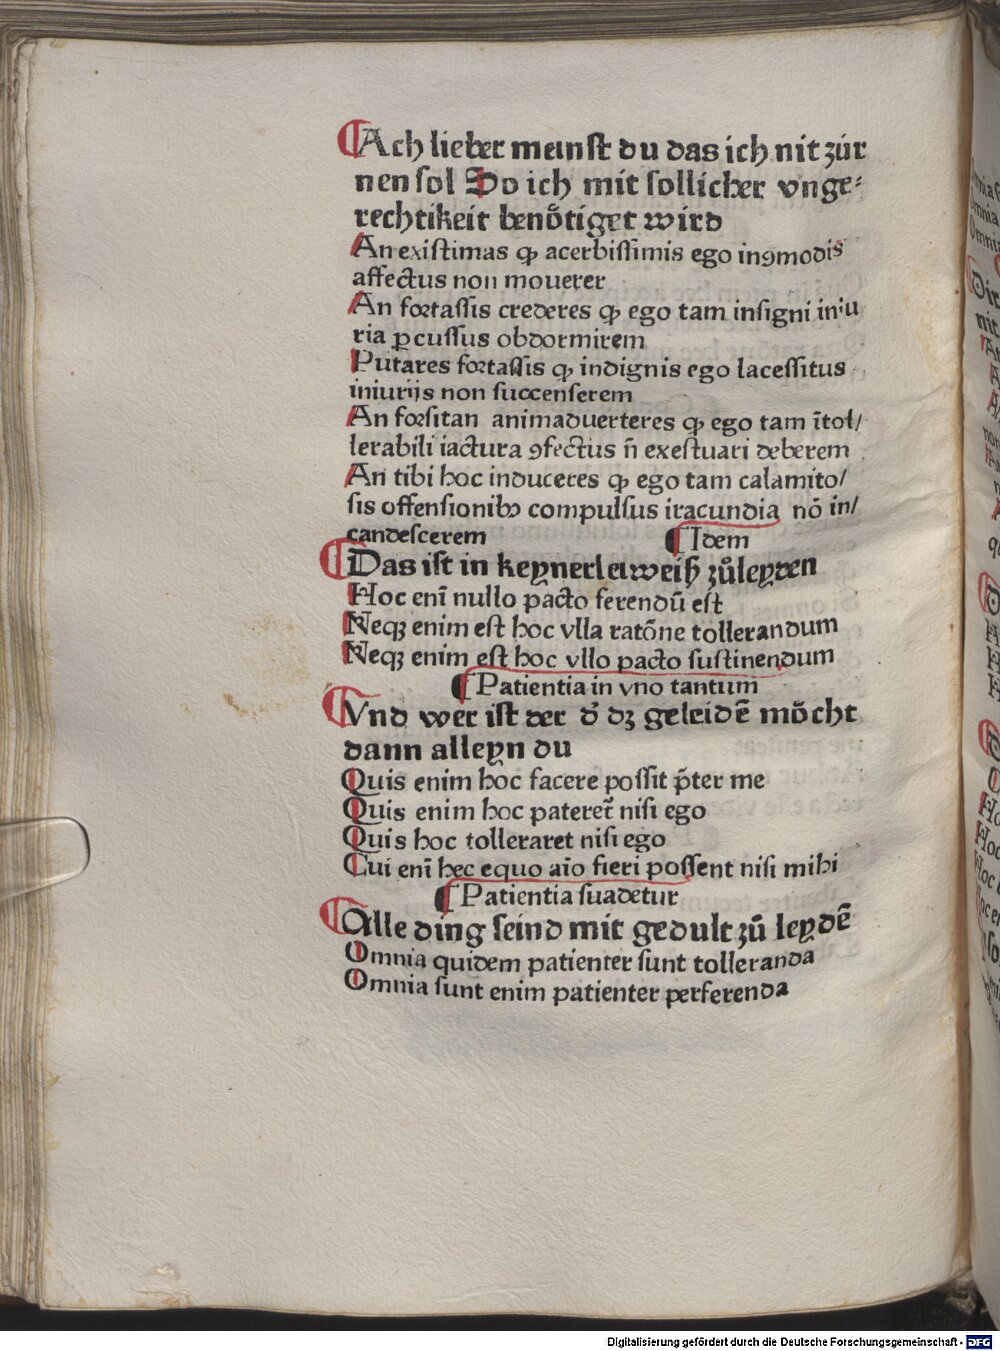 ¶Ach lieber meinst du das ich nit zúr
nen sol Do ich mit sollicher vnge⸗
rechtikeit benötiget wird
An existimas ꝙ acerbissimis ego inꝯmodis
affectus non mouerer
An fortassis crederes ꝙ ego tam insigni iniu
ria ꝑcussus obdormirem
Putares fortassis ꝙ indignis ego lacessitus
iniurijs non succenserem
An forsitan animaduerteres ꝙ ego tam ītol/
lerabili iactura ꝯfectus n̄ exestuari deberem
An tibi hoc induceres ꝙ ego tam calamito/
sis offensionibꝰ compulsus iracundia nō in/
candescerem ¶Idem
¶Das ist in keynerleiweiß zůleyden
Hoc enī nullo pacto ferendū est
Neqꝫ enim est hoc vlla ratōne tollerandum
Neqꝫ enim est hoc vllo pacto sustinendum
¶Patientia in vno tantum
¶Vnd wer ist der d̾ dꝫ geleidē möcht
dann alleyn du
Quis enim hoc facere possit p̄ter me
Quis enim hoc pateret᷑ nisi ego
Quis hoc tolleraret nisi ego
Cui enī hec equo aīo fieri possent nisi mihi
¶Patientia suadetur
¶Alle ding seind mit gedult zů leydē
Omnia quidem patienter sunt tolleranda
Omnia sunt enim patienter perferenda
Digitalisierung gefördert durch die Deutsche Forschungsgemeinschaft - DFG